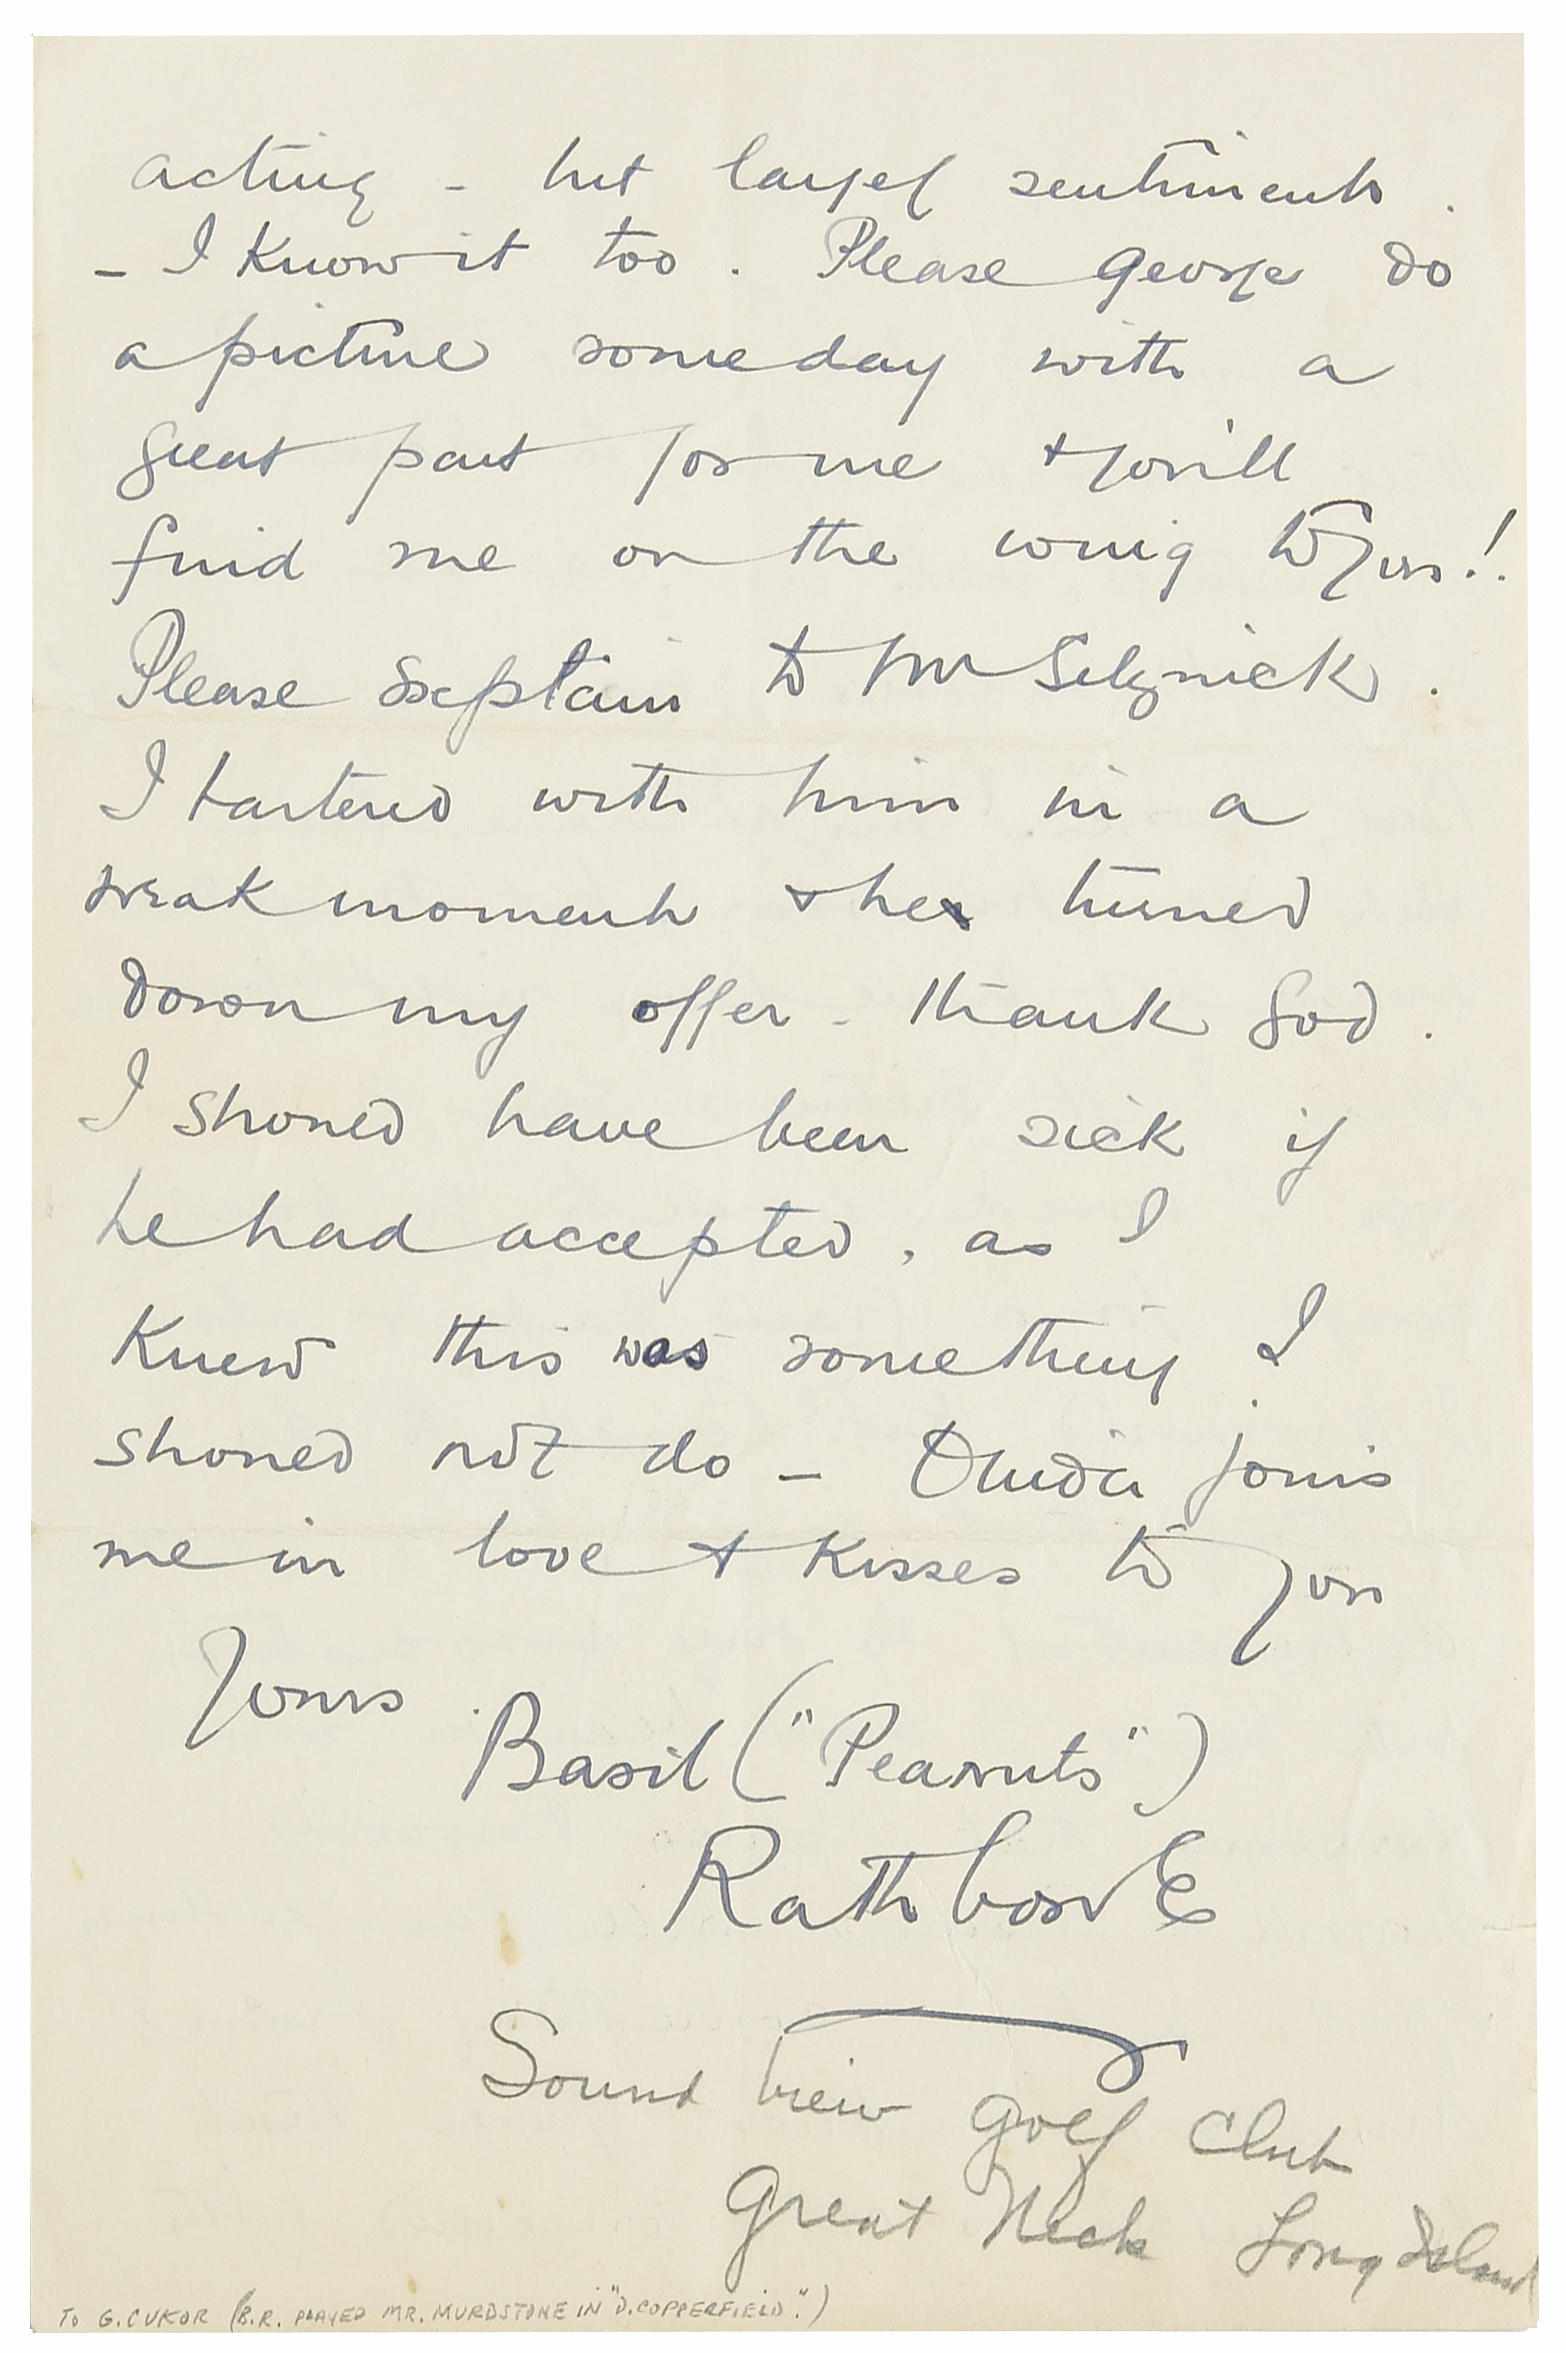 acting - but largely sentiment.
- I know it too. Please George do
a picture someday with a
great part for me & you'll
find me on the wing to you!
Please explain to Mr Selznick.
I bartered with him in a
weak moment & he turned
down my offer - thank God.
I should have been sick if
he had accepted, as I
knew this was something I
should not do - Ouida joins
me in love & kisses to you
Yours.
Basil ("Peanuts")
Rathbone
Sound View Golf Club
Great Neck Long Island
TO G. CUKOR (B.R. PLAYED MR. MURDSTONE IN "D. COPPERFIELD.")